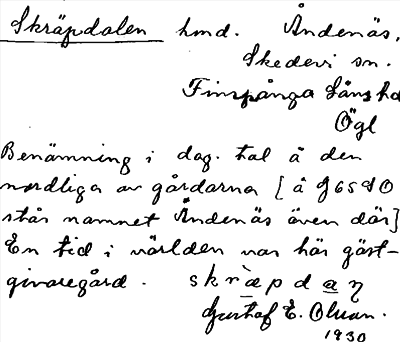 Skräpdalen hmd. Åndenäs,
Skedevi sn.
Finspånga Läns hd
Ögl
Benämning i dag. tal å den
nordliga av gårdarna [å G6590
står namnet Åndenäs även där]
En tid i världen var här gäst-
givaregård. skræpdaṉ
Gustaf E. Olsson.
1930